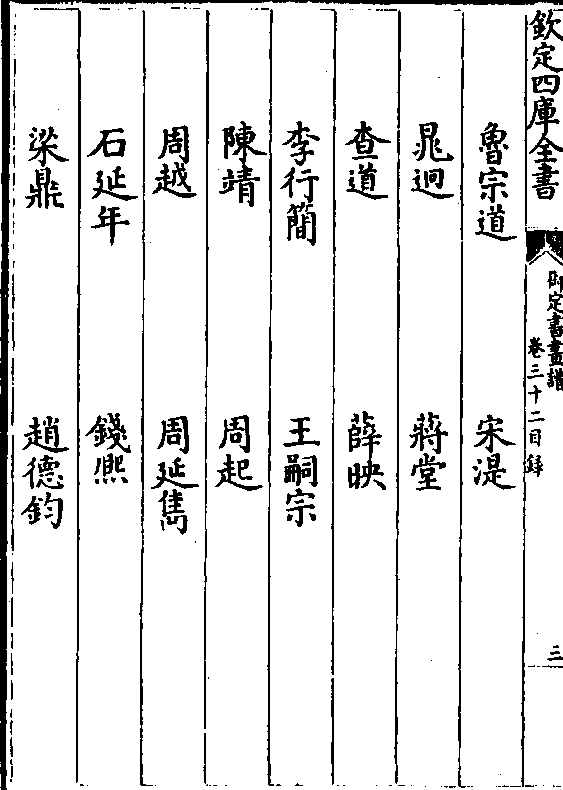 欽定四庫全書
御定書畫譜
卷三十二目録
三
魯宗道 宋湜
晁迥 蔣堂
查道 薛映
李行簡 王嗣宗
陳靖 周起
周越 周延雋
石延年 錢熙
梁鼎 趙德鈞